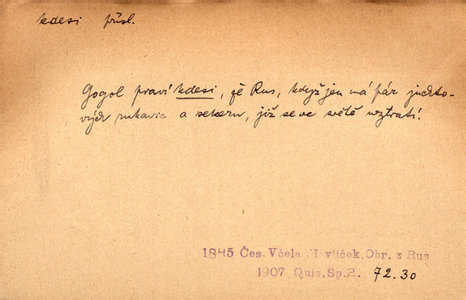 kdesi přísl.
Gogol praví kdesi, že Rus, když jen má pár juchto-
vých rukavic a sekeru, již se ve světě neztratí!
1845 Čes. Včela. Havlíček, Obr. z Rus
1907 Quis, Sp. 2. 92.30